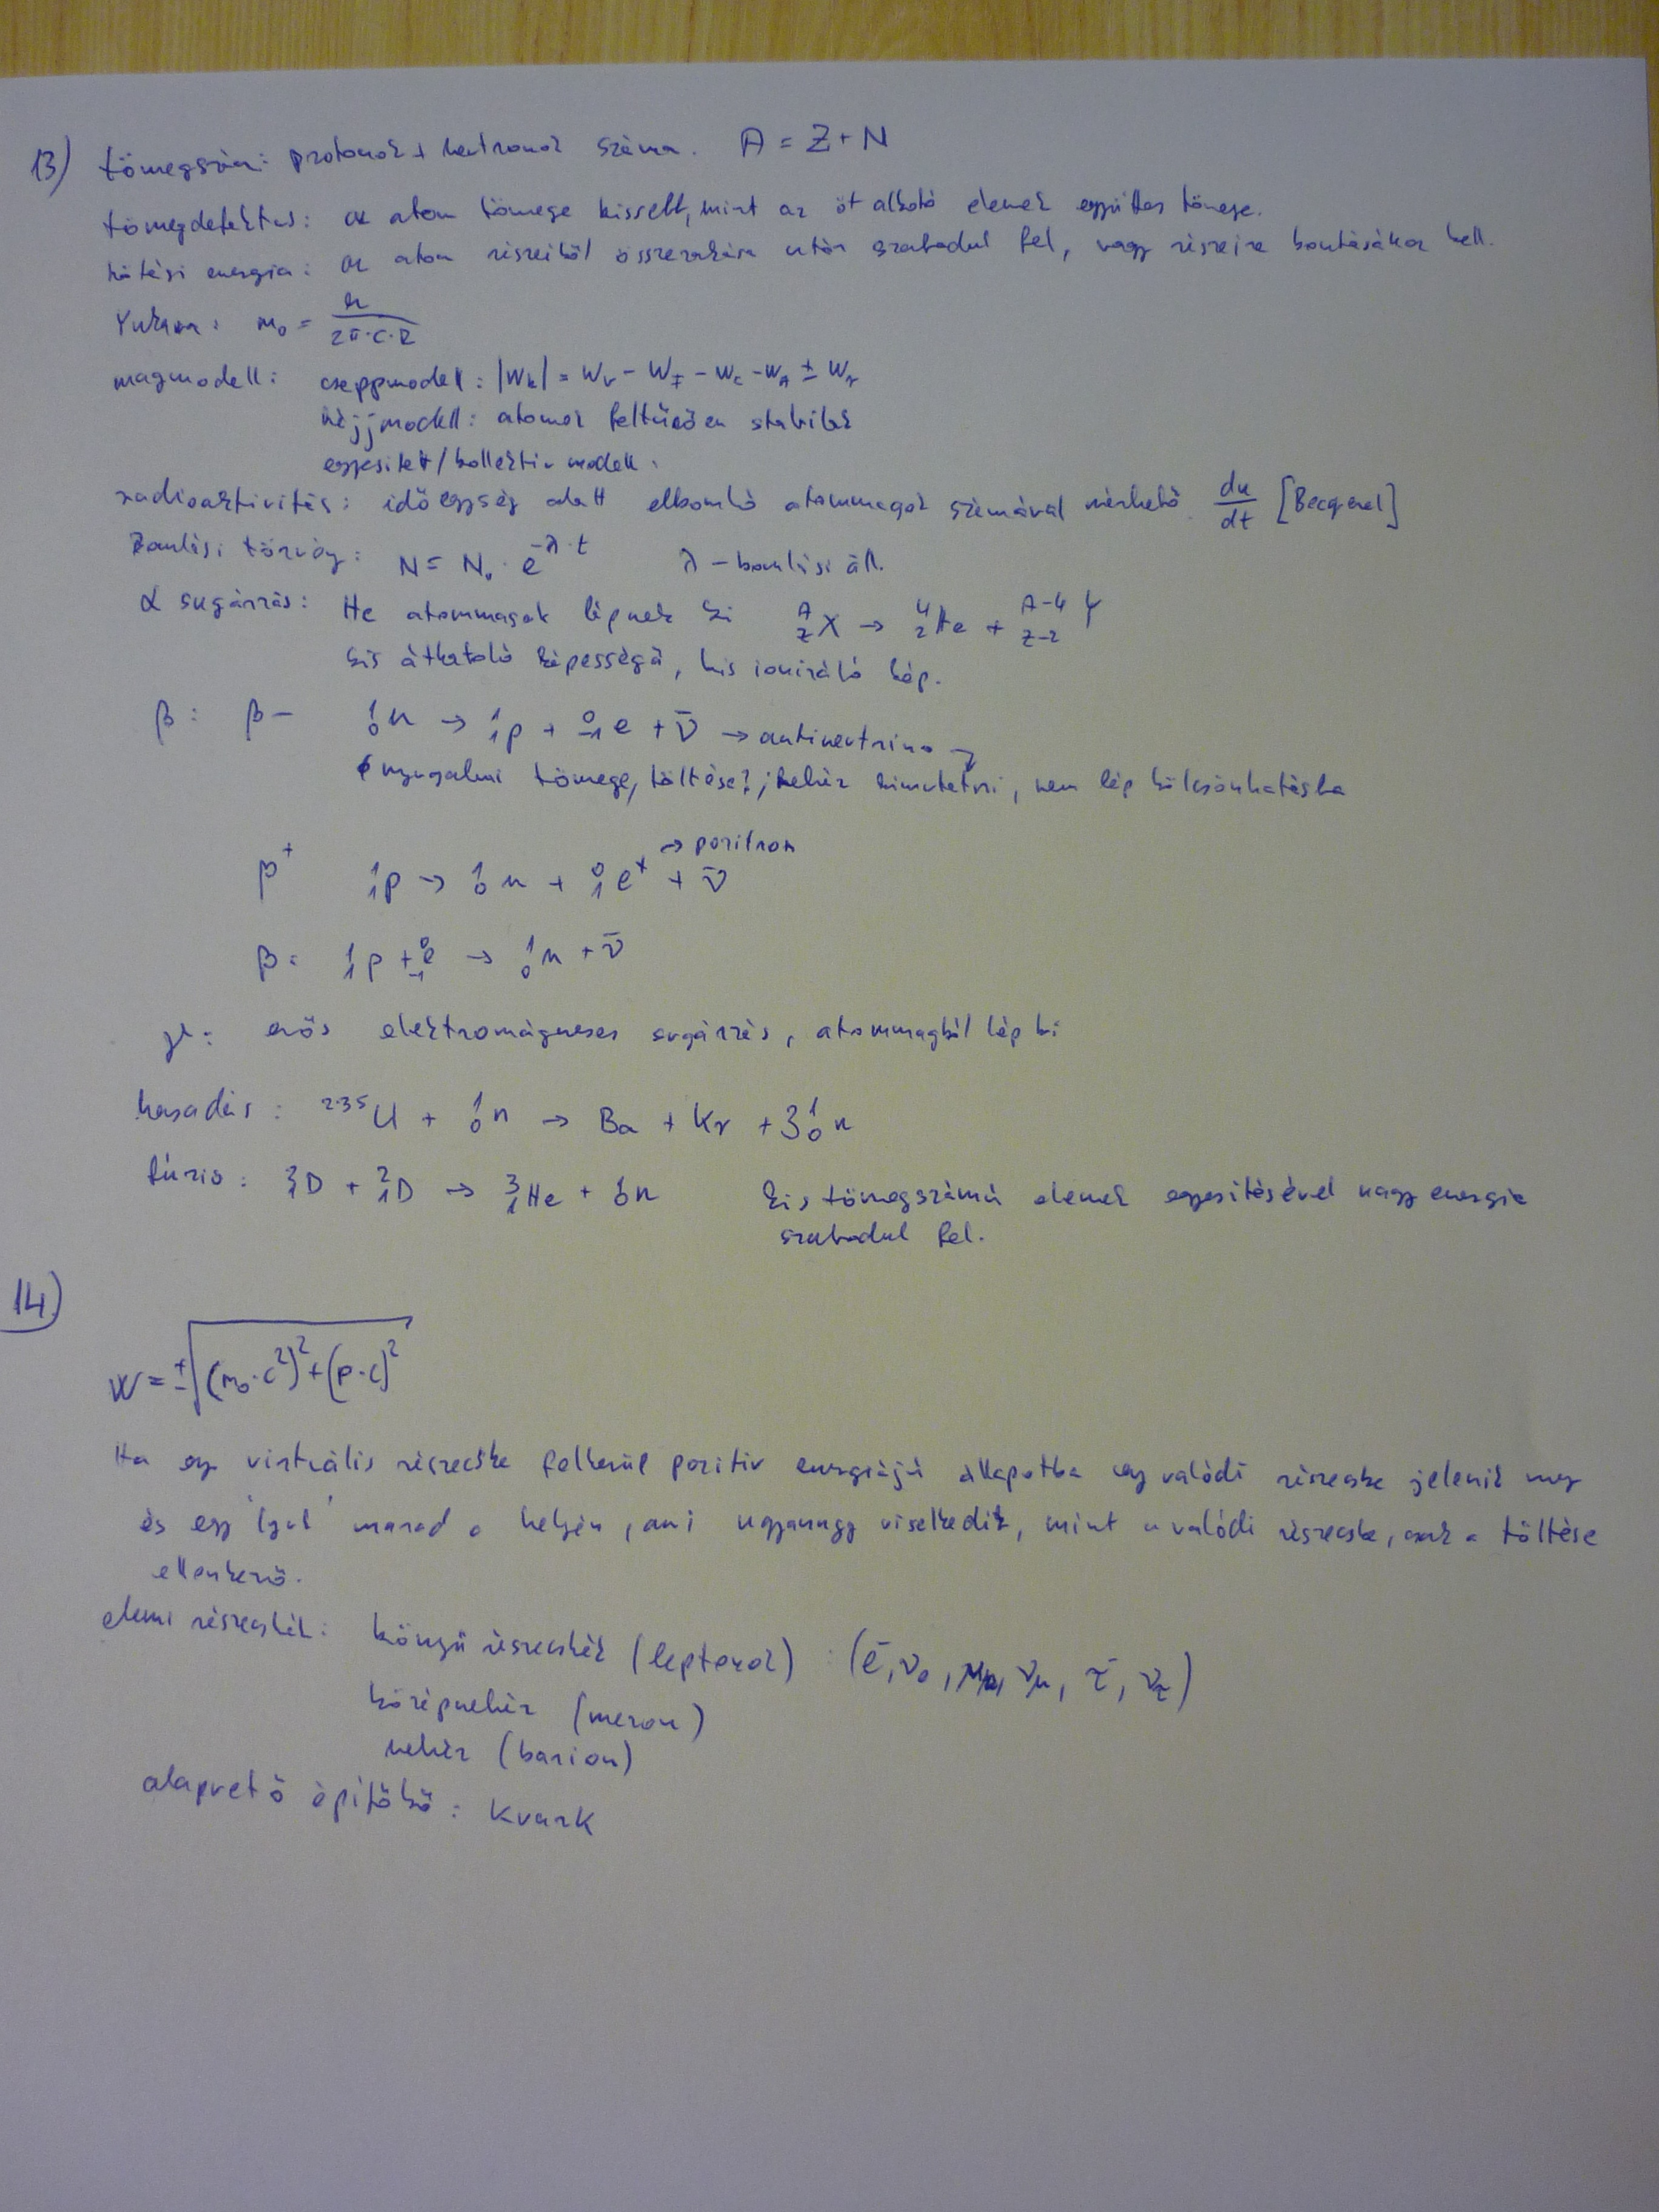 13) tömegszám: protonok + neutronok száma. A = Z + N
tömegdefektus: az atom tömege kissebb, mint az öt alkotó elemek együttes tömege.
kötési energia: az atom részeiből összerakása után szabadul fel, vagy részeire bontásákor kell.
Yukawa: m₀ = h / 2π·c·R
magmodell: cseppmodell: |Wk| = Wv - WF - Wc - WA ± Wγ
héjjmodell: atomok feltűnően stabilak
egyesített/kollektiv modell:
radioaktivitás: időegység alatt elbomló atommagok számával mérhető. dn/dt [Becquerel]
Bomlási törvény: N = N₀ · e^(-λ·t) λ - bomlási áll.
α sugárzás: He atommagok lépnek ki ᴬ_Z X → ⁴₂He + ᴬ⁻⁴_Z₋₂ Y
kis átható képességű, kis ionizáló kép.
β: β− ¹₀n → ¹₁p + ⁰₋₁e + ν̄ → antineutrino
nyugalmi tömege, töltése?, nehéz kimutatni, nem lép kölcsönhatásba
→ pozitron
β⁺ ¹₁p → ¹₀n + ⁰₁e⁺ + ν̄
β: ¹₁p + ⁰₋₁e → ¹₀n + ν̄
γ: erős elektromágneses sugárzás, atommagból lép ki
hasadás: ²³⁵U + ¹₀n → Ba + Kr + 3¹₀n
fúzió: ²₁D + ²₁D → ³₁He + ¹₀n kis tömegszámú elemek egyesítésével nagy energia
szabadul fel.
14)
W = ±√((m₀·c²)² + (p·c)²)
Ha egy virtuális részecske felkerül pozitív energiájú állapotba egy valódi részecske jelenik meg
és egy 'lyuk' marad a helyén, ami ugyanúgy viselkedik, mint a valódi részecske, csak a töltése
ellenkező.
elemi részecskék: könnyű részecskék (leptonok) : (e⁻, νe, μ, νμ, τ⁻, ντ)
középnehéz (mezon)
nehéz (barion)
alapvető építőkő: kvark